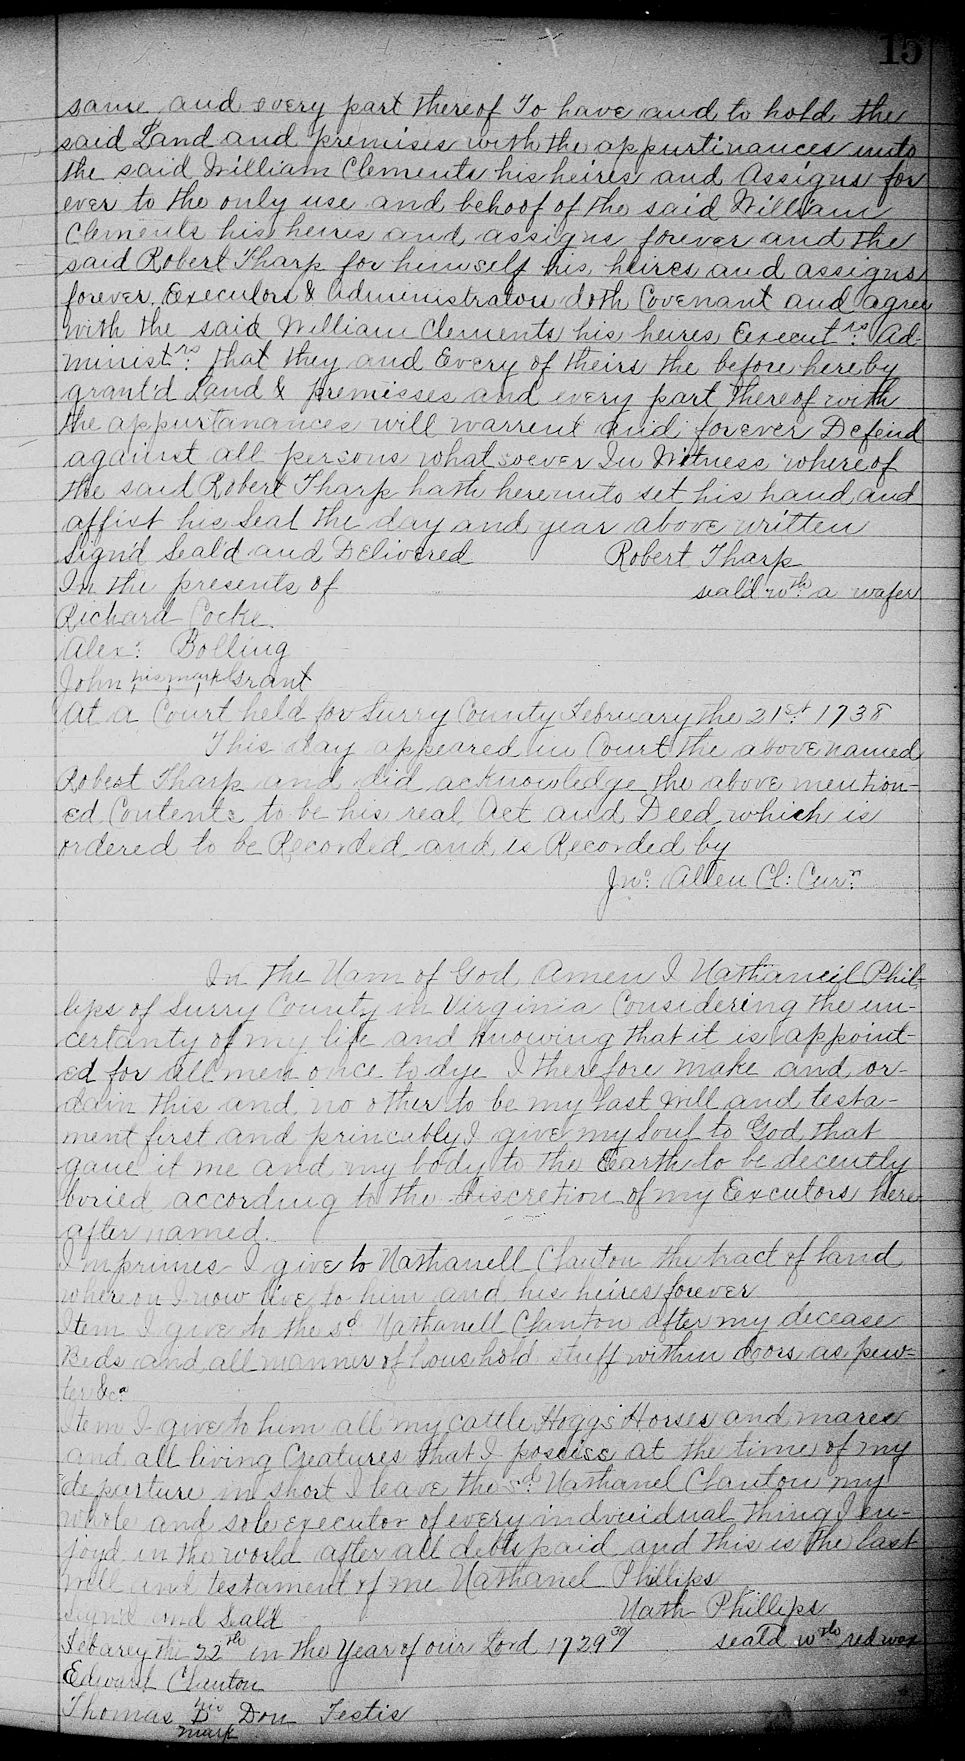 15
same and every part thereof To have and to hold the
said Land and premises with the appurtinances unto
the said William Clements his heires and Assigns for
ever to the only use and behoof of the said William
Clements his heires and assigns forever and the
said Robert Tharp for himself his heires and assigns
forever Executors & Administrators doth Covenant and agree
with the said William Clements his heires, Execut.rs Ad-
minist.rs that they and Every of theirs the before hereby
grant'd Land & premisses and every part thereof with
the appurtanances will warrent and forever Defend
against all persons whatsoever In Witness whereof
the said Robert Tharp hath hereunto set his hand and
affixt his Seal the day and year above written
Sign'd Seal'd and Delivered Robert Tharp
In the presents of seal'd wth. a wafer
Richard Cocke
Alexr. Bolling
John his mark Grant
At a Court held for Surry County February the 21st. 1738
This day appeared in Court the above named
Robert Tharp and did acknowledge the above mention-
ed Contents to be his real Act and Deed which is
ordered to be Recorded and is Recorded by
Jno. Allen Cl: Curn.
In the Nam of God Amen I Nathaneil Phil-
lips of Surry County in Virginia Considering the un-
certanty of my life and knowing that it is appoint-
ed for all men once to dye I therefore make and or-
dain this and no other to be my last will and testa-
ment first and princably I give my Soul to God that
gave it me and my body to the Earth to be decently
buried according to the discretion of my Executors here
after named.
Imprimes I give to Nathanell Clanton the tract of land
whereon I now live to him and his heires forever
Item I give to the sd. Nathanell Clanton after my decease
Beds and all manner of houshold stuff within doors as pew-
ter &ca
Item I give to him all my cattle Hoggs Horses and mares
and all living Creatures that I posciss at the time of my
departure in short I leave the sd. Nathanel Clanton my
whole and sole executor of every individual thing I en-
joyd in the world after all debts paid and this is the last
will and testament of me Nathanel Phillips
Signed and Seald Nath Phillips
Febarey the 22th in the Year of our Lord 1729/30 seal'd wth red wax
Edward Clanton
Thomas his D mark Don Testis